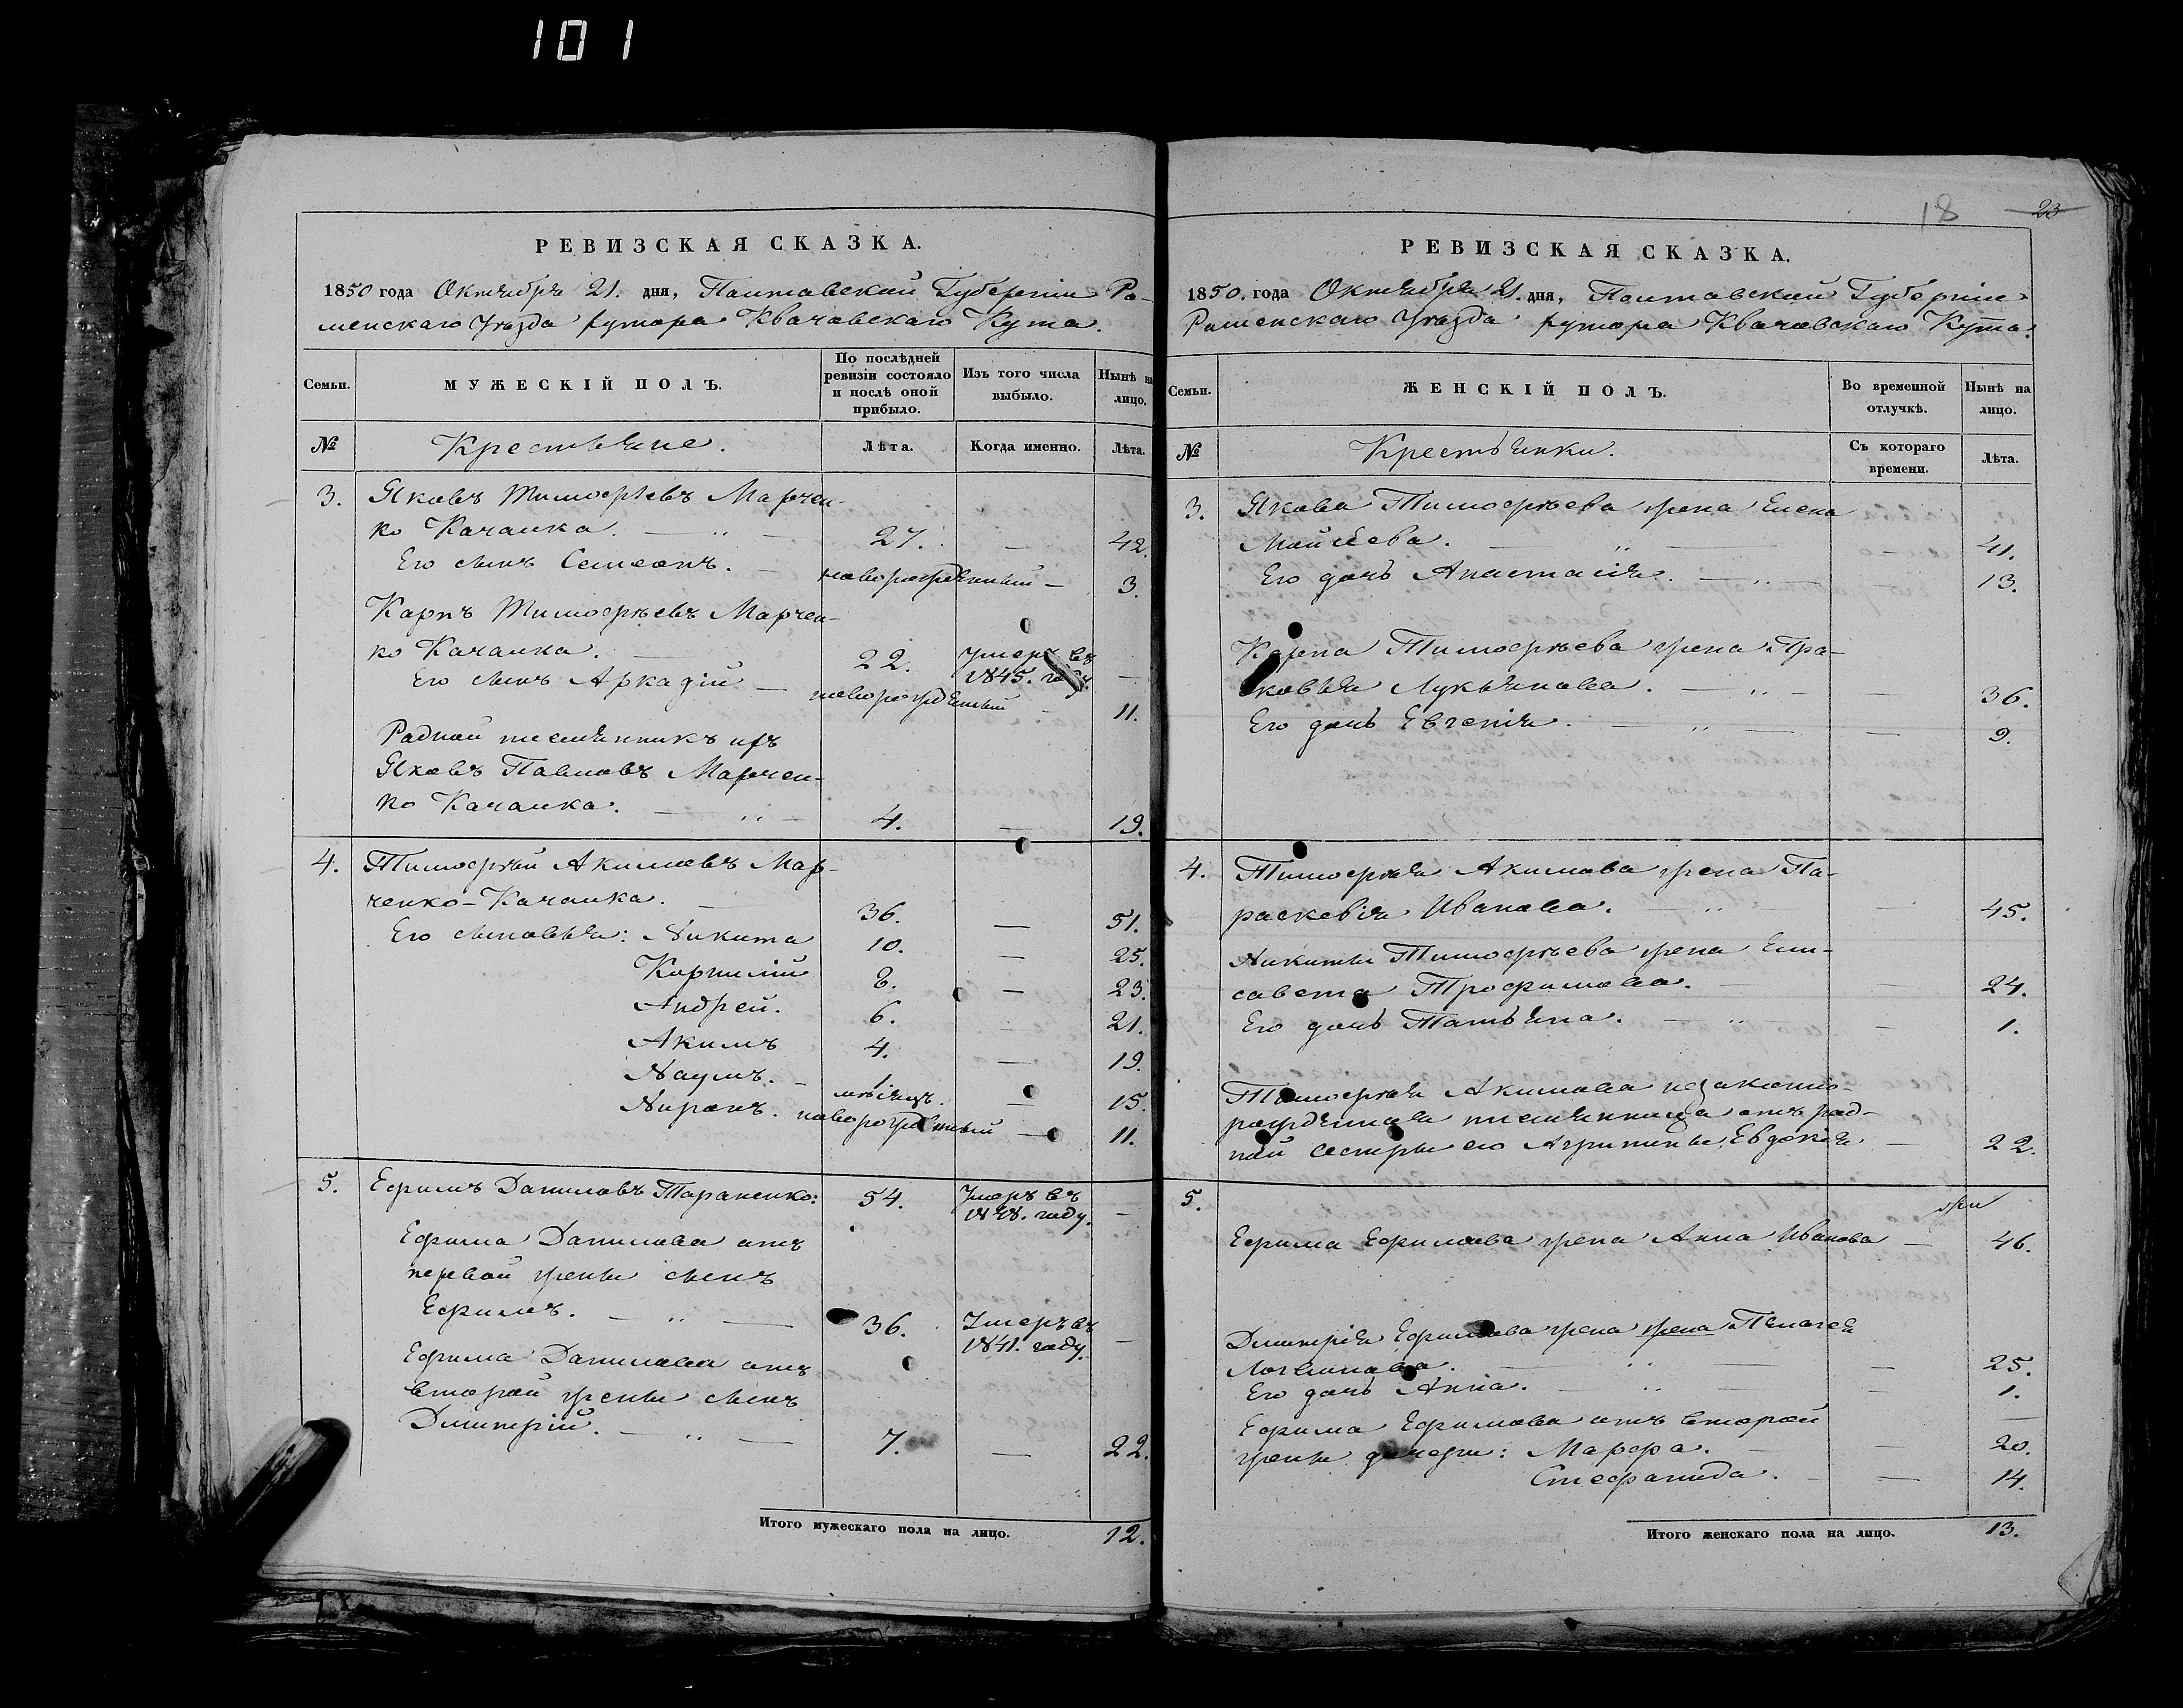 101
РЕВИЗСКАЯ СКАЗКА.
1850 года Октября 21. дня, Полтавской Губерніи Ро-
менскаго Уѣзда хутора Квачовскаго Кута.
Семьи.
МУЖЕСКІЙ ПОЛЪ.
По послѣдней ревизіи состояло и послѣ оной прибыло.
Изъ того числа выбыло.
Нынѣ на лицо.
№
Крестьяне.
Лѣта.
Когда именно.
Лѣта.
3. Яковъ Тимофѣевъ Марчен-
ко Качалка. — „ — 27. — 42.
Его сынъ Семеонъ. — новорожденный — 3.
Карпъ Тимофѣевъ Марчен-
ко Качалка. — 22. Умеръ въ 1845. году. —
Его сынъ Аркадій — новорожденный — 11.
Родной племянникъ ихъ
Яковъ Павловъ Марчен-
ко Качалка. — „ — 4. — 19.
4. Тимофѣй Акимовъ Мар-
ченко-Качалка. — 36. — 51.
Его сыновья: Никита 10. — 25.
Корнилій 8. — 23.
Андрей. 6. — 21.
Акимъ 4. — 19.
Наумъ. — 1 мѣсяцъ. — 15.
Миронъ. новорожденный — 11.
5. Ефимъ Даниловъ Тараненко: 54. Умеръ въ 1848. году. —
Ефима Данилова отъ
первой жены сынъ
Ефимъ. — „ — 36. Умеръ въ 1841. году. —
Ефима Данилова отъ
второй жены сынъ
Димитрій. — „ — 7. — 22.
Итого мужескаго пола на лицо. 12.
18 23
РЕВИЗСКАЯ СКАЗКА.
1850. года Октября 21. дня, Полтавской Губерніи
Роменскаго Уѣзда хутора Квачовскаго Кута.
Семьи.
ЖЕНСКІЙ ПОЛЪ.
Во временной отлучкѣ.
Нынѣ на лицо.
№
Крестьянки.
Съ котораго времени.
Лѣта.
3. Якова Тимофѣева жена Елена
Мойсѣева. — „ — 41.
Его дочь Анастасія. — „ — 13.
Карпа Тимофѣева жена Пра-
сковья Лукьянова. — „ — 36.
Его дочь Евгенія. — „ — 9.
4. Тимофѣя Акимова жена Па-
раскевія Иванова. — „ — 45.
Никиты Тимофѣева жена Ели-
савета Трофимова. — 24.
Его дочь Татьяна. — „ — 1.
Тимофѣя Акимова незаконно-
рожденная племянница отъ род-
ной сестры его Агрипины, Евдокія — 22.
5.
Ефима Ефимова жена Анна Иванова — 46.
Димитрія Ефимова жена жена Пелагея
Логвинова. — „ — 25.
Его дочь Анна. — „ — 1.
Ефима Ефимова отъ второй
жены дочери: Марфа. — 20.
Стефанида. — 14.
Итого женскаго пола на лицо. 13.